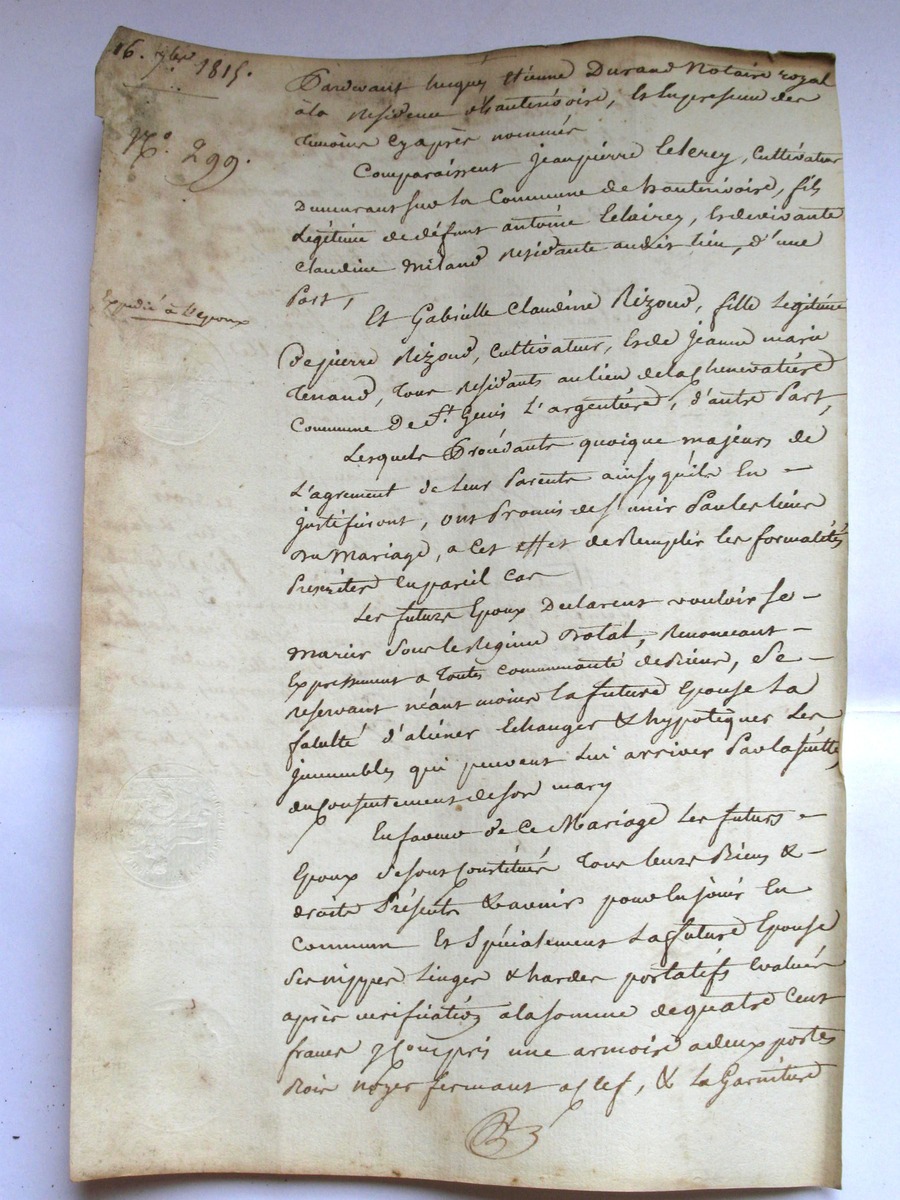 16. 7bre 1815.
N.o 299.
Expédié à l'Epoux
Pardevant Etienne Durand Notaire royal
à la résidence d'hauterivoire, et en presence des
temoins cy après nommés
Comparaissent Jeanpierre Leclerey, Cultivateur
Demeurant sur la Commune de hauterivoire, fils
Légitime de défunt antoine Leclairey, et de vivante
Claudine Miland residante audit lieu, d'une
Part,
Et Gabrielle Claudine Rizoud, fille Legitime
De pierre Rizoud, Cultivateur, et de Jeanne marie
Tenaud, tous residants au lieu de la Chenevatière
Commune De St. Genis L'argentière, d'autre Part,
Lesquels Procédants quoique majeurs de
L'agrement de leur Parents ainsy qu'ils En -
justifiront, ont Promis de S'unir Par les liens
du Mariage, a cet effet de Remplir les formalités
Prescrites En pareil cas
Les futurs Epoux Declarent vouloir se -
Marier Sous le Regime Dotal, Renoncant -
Expressement a Toutes communauté de Biens, se -
reservant néant moins la future Epouse La
faculté d'aliéner Echanger & hypotéquer Les
immeubles qui peuvent Lui arriver Par la suitte,
du Consentement de son mary
En faveur de ce Mariage Les futurs -
Epoux se sont Constitués Tous leurs Biens & -
droits Présents & avenir pour En jouir En
Commun Et Spécialement La future Epouse
Ses nippes Linges & hardes portatifs Evalués
après verification a la somme de quatre Cent
francs y Compris une armoire a deux portes
Bois Noyer fermant a Clef, & La Garniture